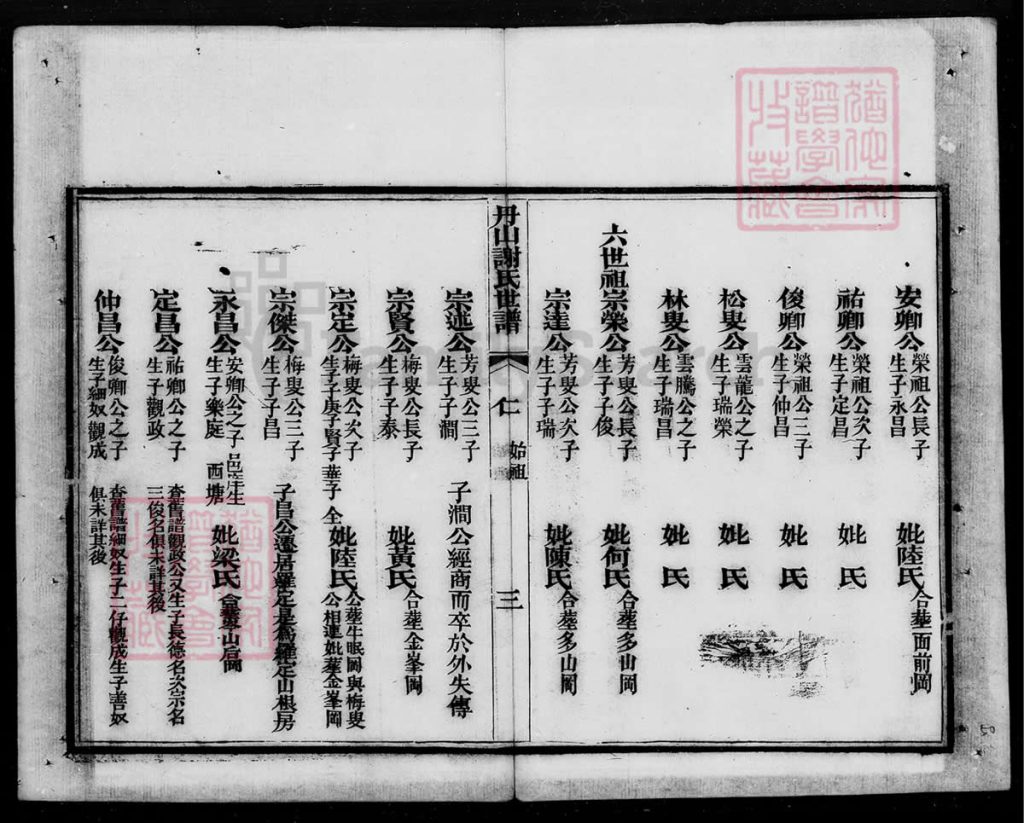 安卿公 榮祖公長子 生子永昌 妣陸氏 合葬面前岡
祐卿公 榮祖公次子 生子定昌 妣氏
俊卿公 榮祖公三子 生子仲昌 妣氏
松叟公 雲龍公之子 生子瑞榮 妣氏
林叟公 雲騰公之子 生子瑞昌 妣氏
六世祖宗榮公 芳叟公長子 生子子俊 妣何氏 合葬多山岡
宗達公 芳叟公次子 生子子瑞 妣陳氏 合葬多山岡
丹山謝氏世譜 仁 始祖 三
宗述公 芳叟公三子 生子子澗 子澗公經商而卒於外失傳
宗賢公 梅叟公長子 生子子泰 妣黃氏 合葬金峯岡
宗定公 梅叟公次子 生子子庚子賢子華子全 妣陸氏 公葬牛眠岡與梅叟公相連妣葬金峯岡
宗傑公 梅叟公三子 生子子昌 子昌公遷居羅定是為羅定山根房
永昌公 安卿公之子邑庠生 生子樂庭 西塘 妣梁氏 合葬 山后岡
定昌公 祐卿公之子 生子觀政 查舊譜觀政公又生子長德名次宗名三俊名俱未詳其後
仲昌公 俊卿公之子 生子細奴觀成 查舊譜細奴生子二仔觀成生子善奴俱未詳其後
譜學會
收藏
FamilySearch